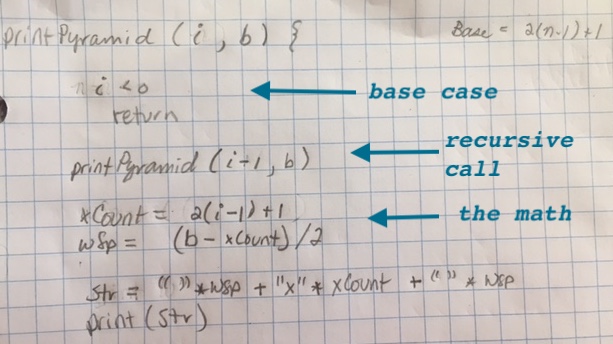 printPyramid (i, b) {
Base = 2(n-1)+1
i <0
base case
return
recursive
call
printPyramid (i-1, b)
xCount = 2(i-1)+1
the math
wSp = (b - xCount)/2
str = " " * wSp + "x" * xCount + " " * wSp
print (str)